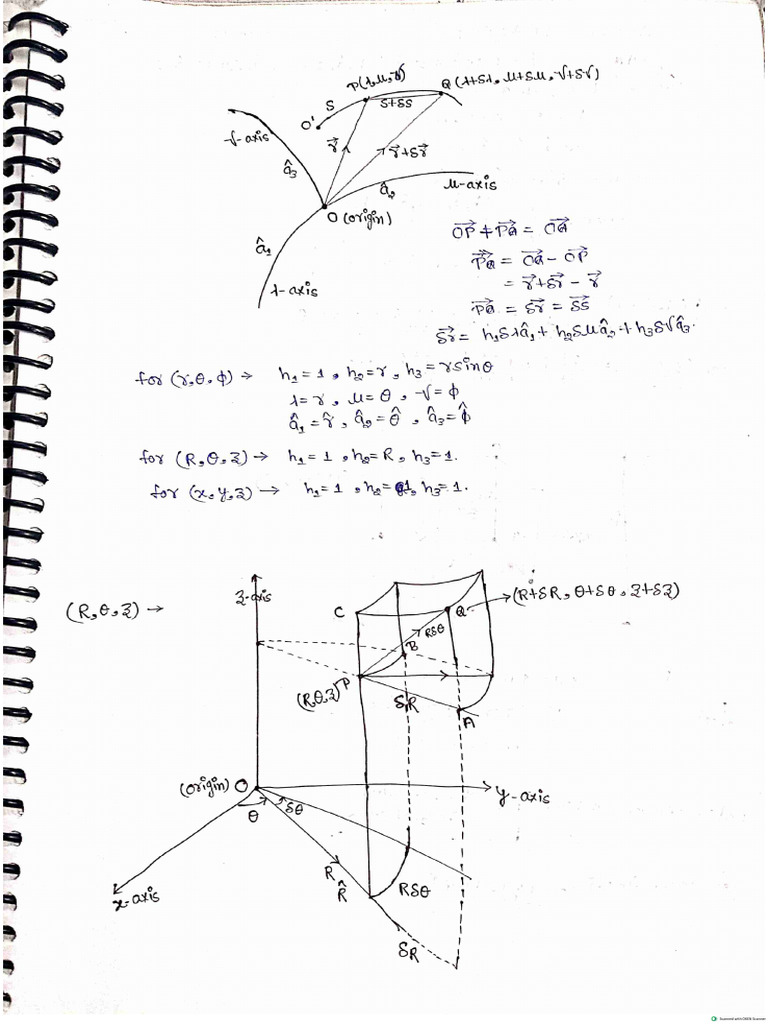 P(λ,μ,ν)
Q (λ+δλ, μ+δμ, ν+δν)
S
δ+δs
O'
ν-axis
r⃗
r⃗+δr⃗
â₃
â₂
μ-axis
O (origin)
â₁
λ-axis
OP⃗ + PQ⃗ = OQ⃗
PQ⃗ = OQ⃗ - OP⃗
= r⃗+δr⃗ - r⃗
PQ⃗ = δr⃗ = δs⃗
δr⃗ = h₁δλâ₁ + h₂δμâ₂ + h₃δνâ₃.
for (r,θ,φ) → h₁=1, h₂=r, h₃=rsinθ
λ=r, μ=θ, ν=φ
â₁=r̂, â₂=θ̂, â₃=φ̂
for (R,θ,z) → h₁=1, h₂=R, h₃=1.
for (x,y,z) → h₁=1, h₂=1, h₃=1.
(R,θ,z) →
z-axis
C
Q
(R+δR, θ+δθ, z+δz)
Rδθ
B
P
(R,θ,z)
δR
A
(origin) O
y-axis
θ
δθ
R
R̂
Rδθ
x-axis
δR
Scanned with OKEN Scanner